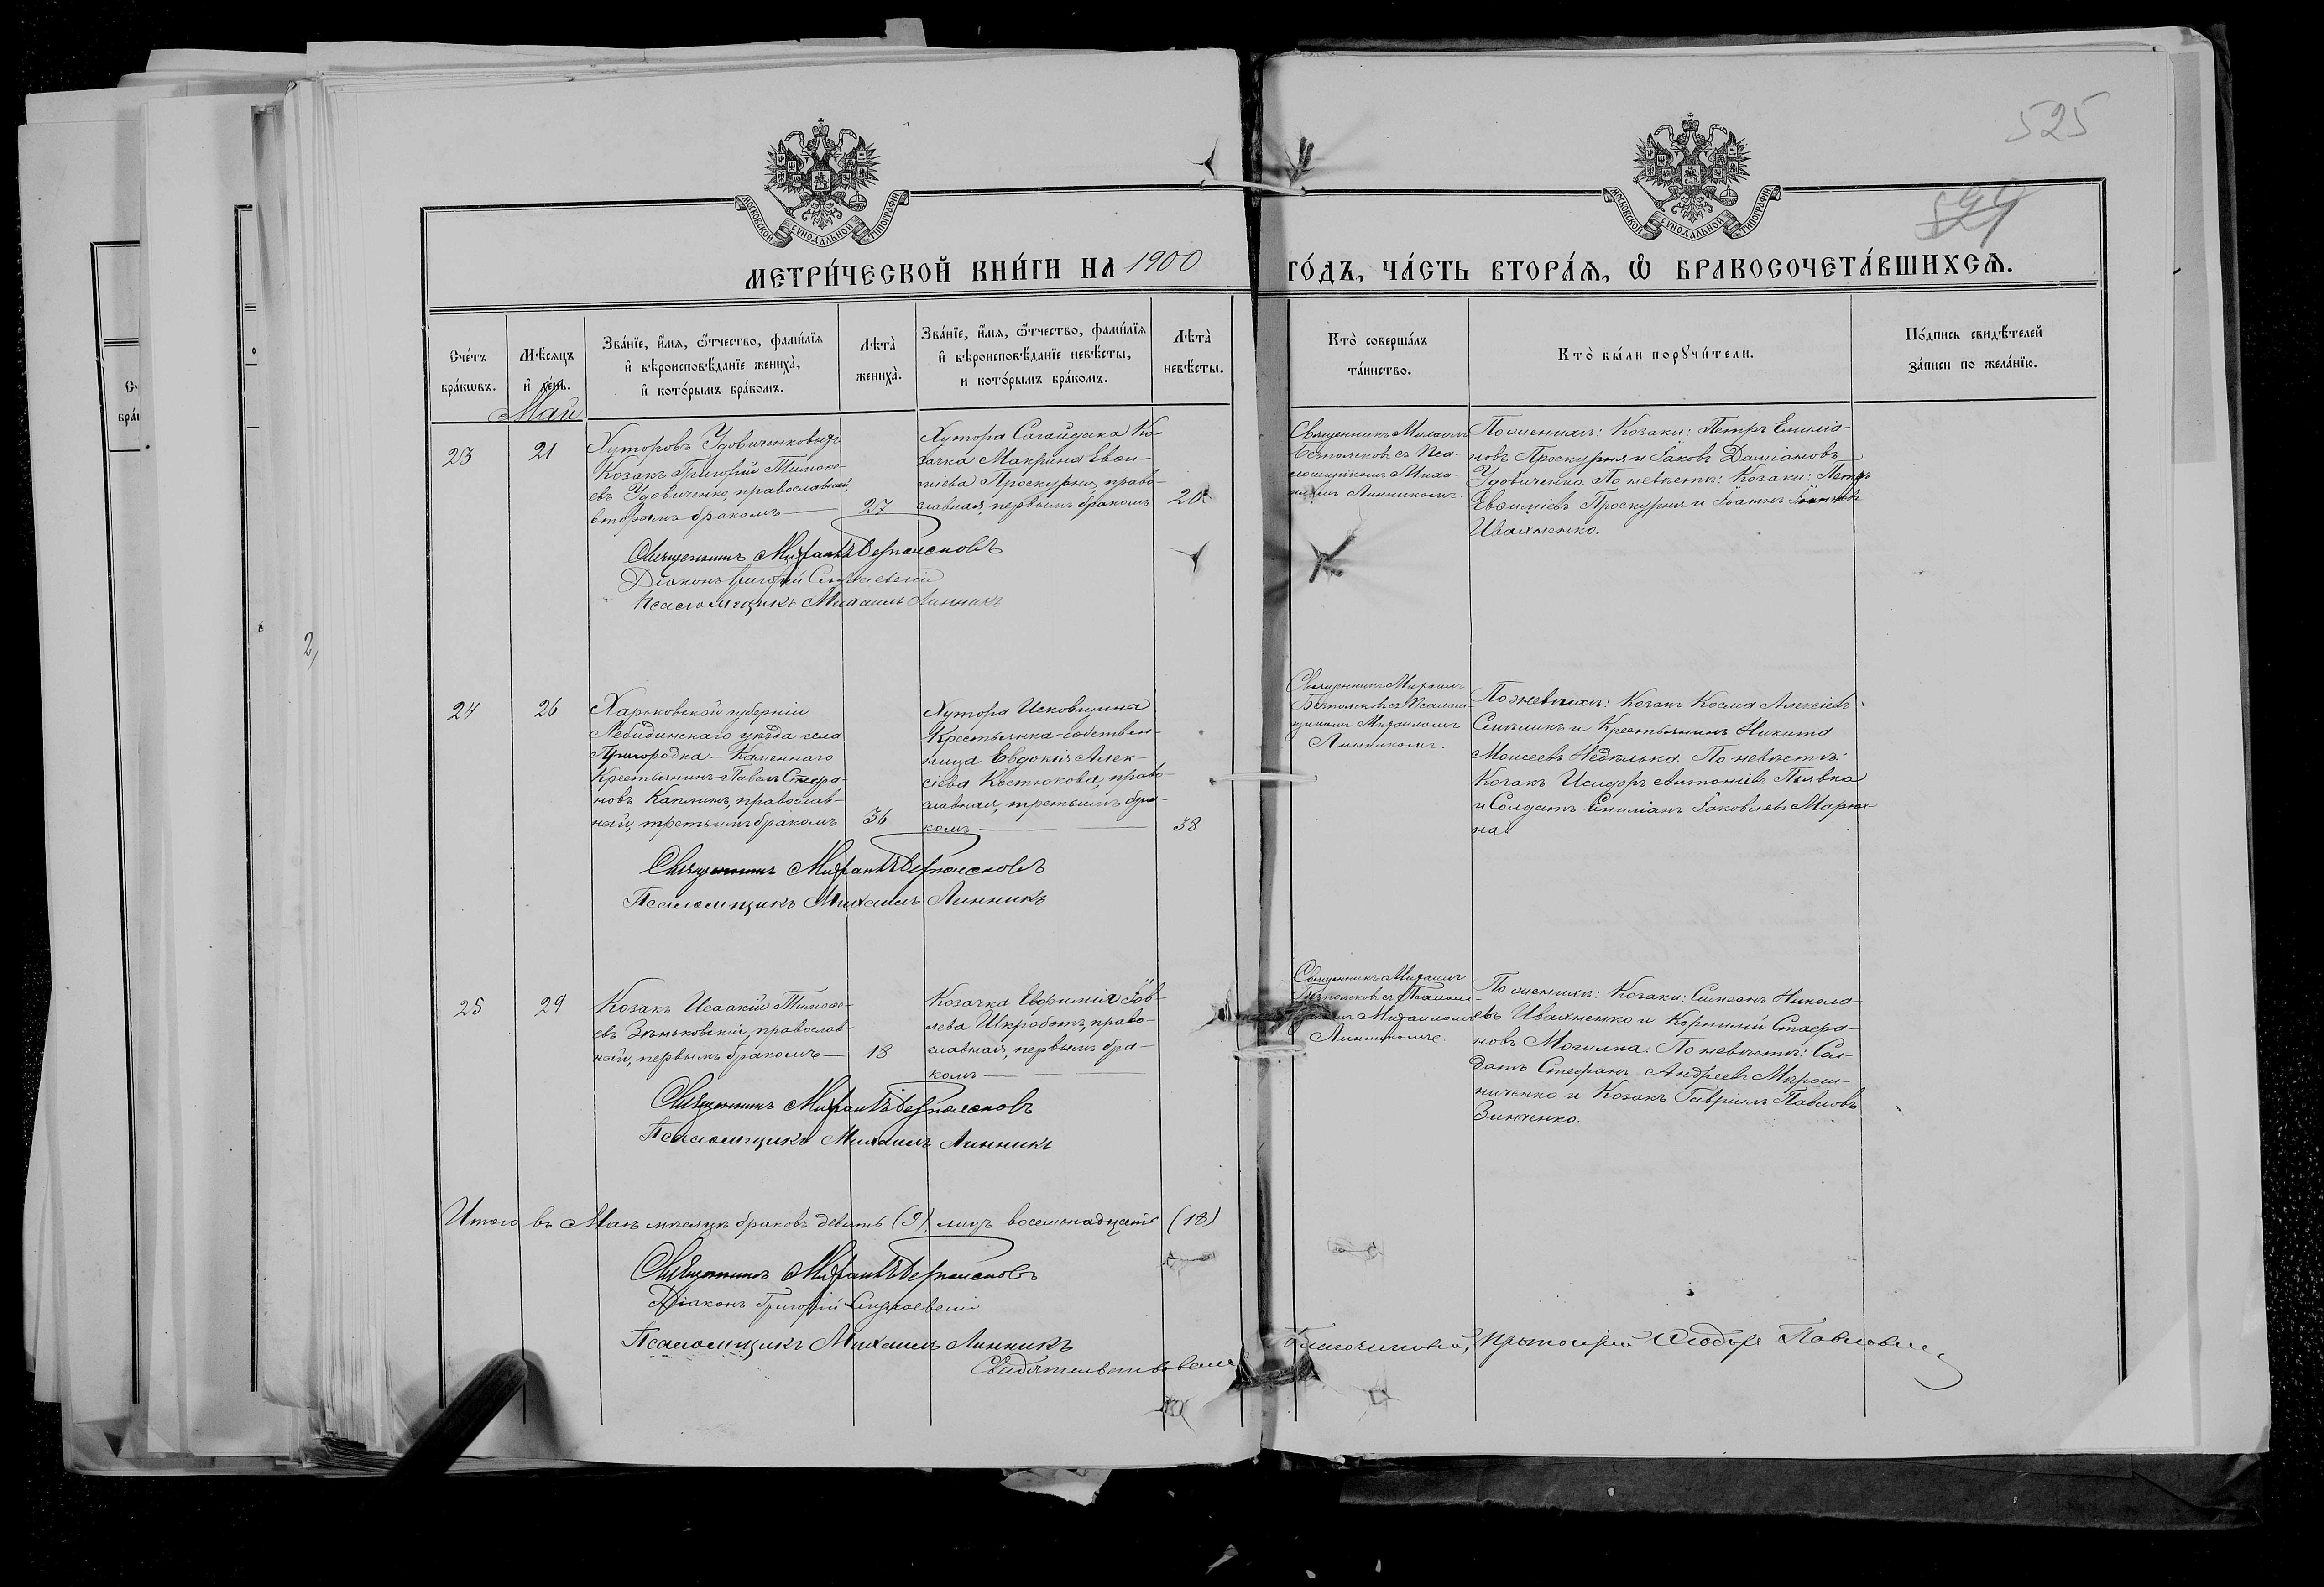 525
МОСКОВСКОЙ СѴНОДАЛЬНОЙ ТИПОГРАФІИ
МОСКОВСКОЙ СѴНОДАЛЬНОЙ ТИПОГРАФІИ
МЕТРИ́ЧЕСКОЙ КНИ́ГИ НА 1900 ГО́ДЪ, ЧА́СТЬ ВТОРА́Я, Ѡ БРАКОСОЧЕТА́ВШИХСЯ.
Сче́тъ бра́кѡвъ.
Мѣ́сяцъ и҆ де́нь.
Зва́нїе, и҆́мя, ѻ҆́тчество, фамѝлїя
и҆ вѣроисповѣ́данїе жениха̀,
и҆ кото́рымъ бра́комъ.
Лѣта̀ жениха̀.
Зва́нїе, и҆́мя, ѻ҆́тчество, фамѝлїя
и҆ вѣроисповѣ́данїе невѣ́сты,
и кото́рымъ бра́комъ.
Лѣта̀ невѣ́сты.
Кто̀ соверша́лъ та́инство.
Кто̀ бы́ли порꙋчи́тели.
По́дпись свидѣ́телей за́писи по жела́нїю.
Май
23
21
Хуторовъ Удовиченковыхъ
Козакъ Григорій Тимоѳе-
евъ Удовиченко, православный,
вторымъ бракомъ
27
Хутора Сагайдака Ко-
зачка Макрина Евѳи-
міева Проскурня, право-
славная, первымъ бракомъ
20
Священникъ Михаилъ
Безпоясковъ съ Пса-
ломщикомъ Миха-
иломъ Линникомъ.
По женихѣ: Козаки: Петръ Емилія-
новъ Проскурня и Іаковъ Даміановъ
Удовиченко. По невѣстѣ: Козаки: Петръ
Евѳиміевъ Проскурня и Іоаннъ
Ивахненко.
Священникъ Михаилъ Безпоясковъ
Діаконъ Григорій
Псаломщикъ Михаилъ Линникъ
24
26
Харьковской губерніи
Лебидинскаго уѣзда села
Пригородка-Каменнаго
Крестьянинъ Павелъ Стефа-
новъ Каплинъ, православ-
ный, третьимъ бракомъ
36
Хутора Исковщина
Крестьянка-собствен-
ница Евдокія Алек-
сіева Костюкова, право-
славная, третьимъ бра-
комъ
38
Священникъ Михаилъ
Безпоясковъ съ Псалом-
щикомъ Михаиломъ
Линникомъ.
По женихѣ: Козакъ Косма Алексіевъ
и Крестьянинъ Никита
Моисеевъ Недѣлька. По невѣстѣ:
Козакъ Исидоръ Антоніевъ Пьявка
и Солдатъ Емиліанъ Іаковлевъ
Священникъ Михаилъ Безпоясковъ
Псаломщикъ Михаилъ Линникъ
25
29
Козакъ Исаакій Тимоѳе-
евъ Зѣньковскій, православ-
ный, первымъ бракомъ
18
Козачка Евфимія Іов-
лева Шкработъ, право-
славная, первымъ бра-
комъ
Священникъ Михаилъ
Безпоясковъ съ Псалом-
щикомъ Михаиломъ
Линникомъ.
По женихѣ: Козаки: Симеонъ Никола-
евъ Ивахненко и Корнилій Стефа-
новъ Могилка. По невѣстѣ: Сол-
датъ Стефанъ Андреевъ Мирош-
ниченко и Козакъ Гавріилъ Павловъ
Зинченко.
Священникъ Михаилъ Безпоясковъ
Псаломщикъ Михаилъ Линникъ
Итого въ Маѣ мѣсяцѣ браковъ девять (9), лицъ восемнадцать (18)
Священникъ Михаилъ Безпоясковъ
Діаконъ Григорій
Псаломщикъ Михаилъ Линникъ
Свидѣтельствовалъ Благочинный, протоіерей Ѳеодоръ Павловичъ